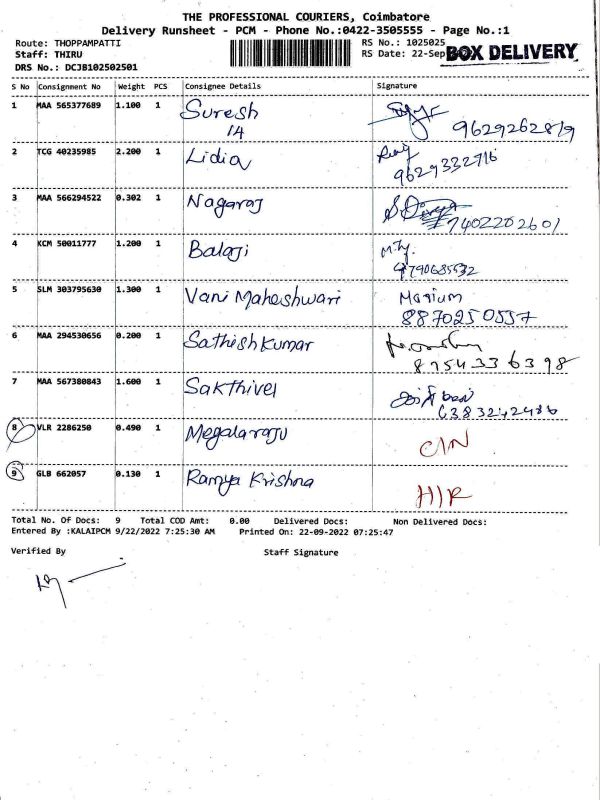 THE PROFESSIONAL COURIERS, Coimbatore
Delivery Runsheet - PCM - Phone No.:0422-3505555 - Page No.:1
Route: THOPPAMPATTI RS No.: 1025025
Staff: THIRU RS Date: 22-Sep BOX DELIVERY
DRS No.: DCJB102502501
S No Consignment No Weight PCS Consignee Details Signature
1 MAA 565377689 1.100 1 Suresh
1A 9629262819
2 TCG 40235985 2.200 1 Lidia
9629332716
3 MAA 566294522 0.302 1 Nagaraj
7402202601
4 KCM 50011777 1.200 1 Balaji
5 SLM 303795630 1.300 1 Vani Maheshwari Marium
8870250557
6 MAA 294530656 0.200 1 Sathish Kumar
8754336398
7 MAA 567380843 1.600 1 Sakthivel
6383242486
8 VLR 2286250 0.490 1 Megalaraju C/N
9 GLB 662057 0.130 1 Ramya Krishna H/R
Total No. Of Docs: 9 Total COD Amt: 0.00 Delivered Docs: Non Delivered Docs:
Entered By :KALAIPCM 9/22/2022 7:25:30 AM Printed On: 22-09-2022 07:25:47
Verified By Staff Signature